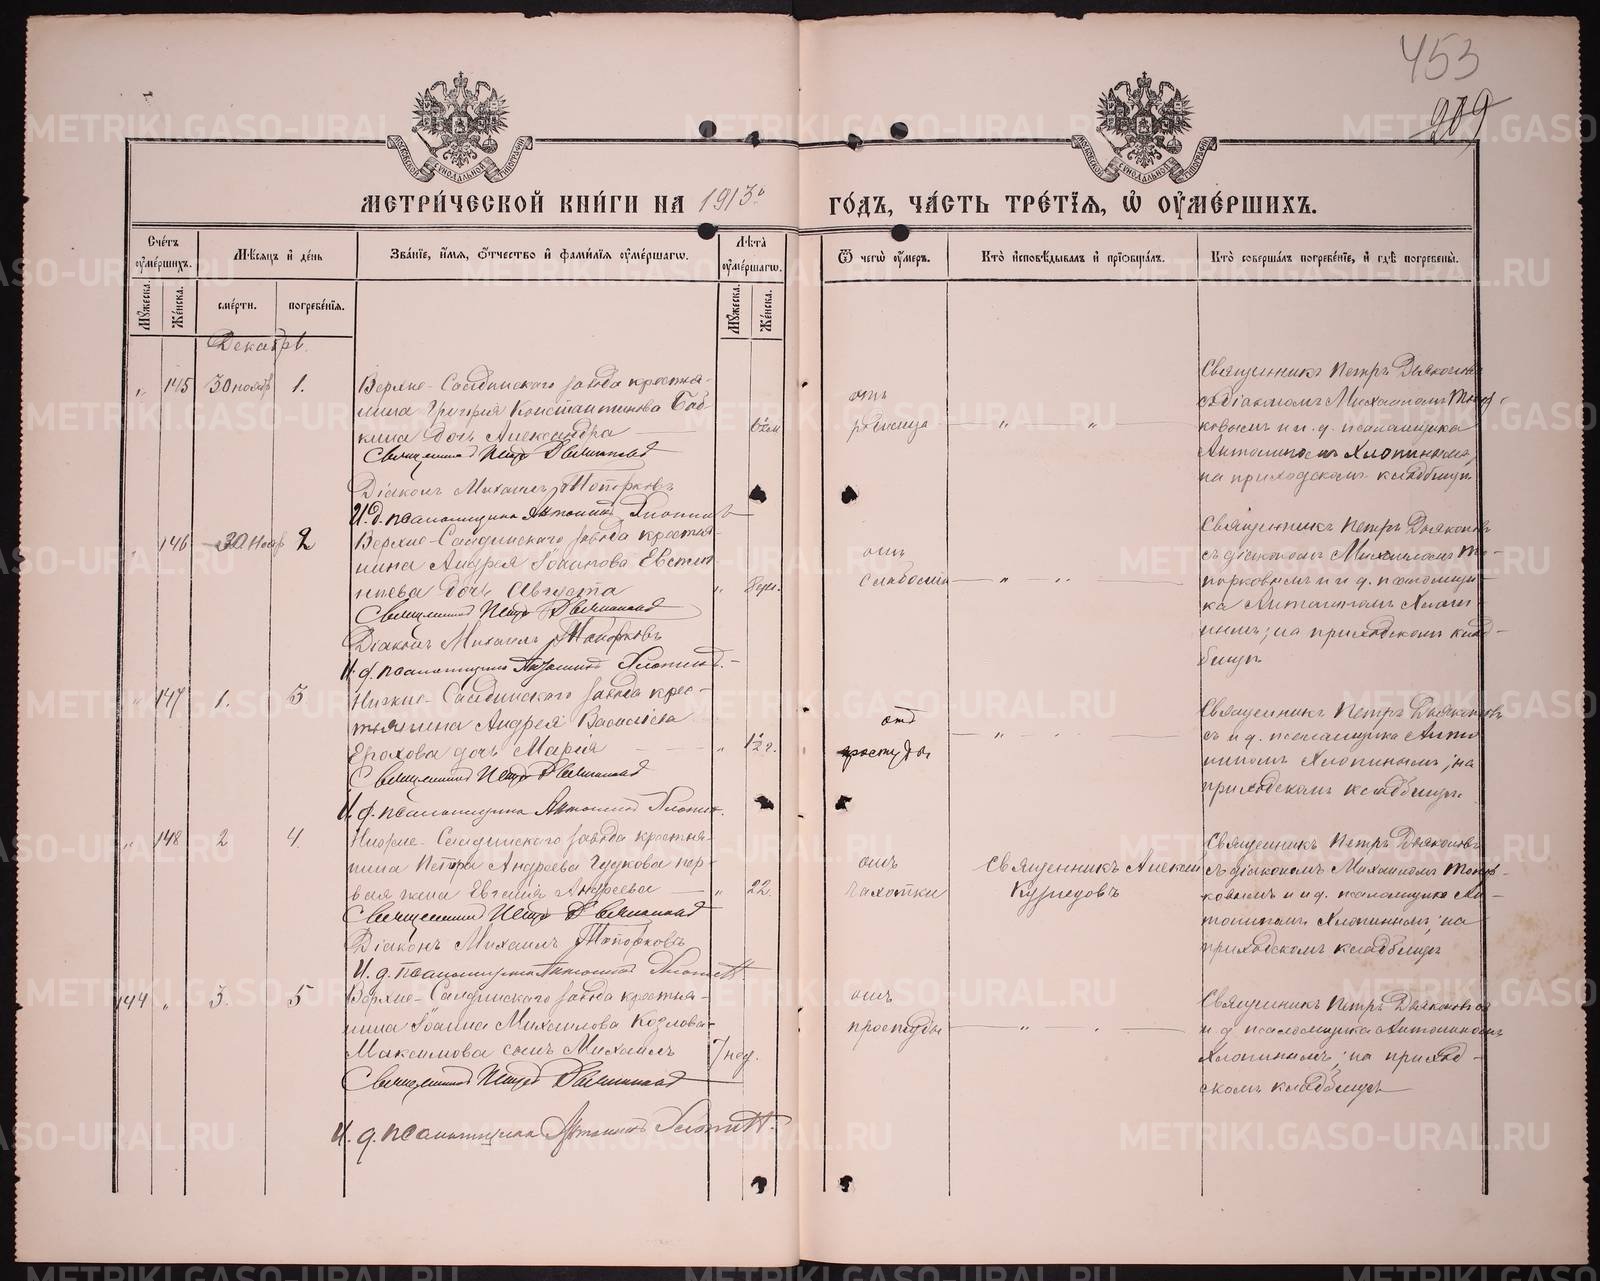 453
209
МЕТРИ́ЧЕСКОЙ КНИ́ГИ НА 1913 ГО́ДЪ, ЧА́СТЬ ТРЕ́ТЇѦ, Ѡ҆ ОУ҆МЕ́РШИХЪ.
МОСКОВСКОЙ СѴНОДАЛЬНОЙ ТИПОГРАФІИ
МОСКОВСКОЙ СѴНОДАЛЬНОЙ ТИПОГРАФІИ
Сче́тъ оу҆ме́ршихъ.
Мѣ́сѧцъ и҆ де́нь
Зва́нїе, и҆́мѧ, ѻ҆́тчество и҆ фами́лїѧ оу҆ме́ршагѡ.
Лѣ́та оу҆ме́ршагѡ.
Ѿ чегѡ̀ оу҆́меръ.
Кто̀ и҆сповѣ́дывалъ и҆ прїѡбща́лъ.
Кто̀ соверша́лъ погребе́нїе, и҆ гдѣ̀ погребены̀.
Мꙋ́жеска.
Же́нска.
сме́рти.
погребе́нїѧ.
Мꙋ́жеска.
Же́нска.
Декабрь.
„ 145 30 ноября 1.
Верхне-Салдинскаго завода крестья-
нина Григорія Константинова Баб-
кина дочь Александра
Священникъ Петръ Дьяконовъ
Діаконъ Михаилъ Топорковъ
И. д. псаломщика Антонинъ Хлопинъ
отъ
родимца
„ „
Священникъ Петръ Дьяконовъ
съ діакономъ Михаиломъ Топор-
ковымъ и и. д. псаломщика
Антониномъ Хлопинымъ,
на приходскомъ кладбищѣ
146 30 нояр 2
Верхне-Салдинскаго завода крестья-
нина Андрея Іоаннова Евстиг-
нѣева дочь Августа
„
Священникъ Петръ Дьяконовъ
Діаконъ Михаилъ Топорковъ
И. д. псаломщика Антонинъ Хлопинъ.
отъ
слабости
„ „
Священникъ Петръ Дьяконовъ
съ діакономъ Михаиломъ То-
порковымъ и и. д. псаломщи-
ка Антониномъ Хлопи-
нымъ; на приходскомъ клад-
бищѣ
„ 147 1. 3
Нижне-Салдинскаго завода крес-
тьянина Андрея Васильева
Ерохова дочь Марія
„ 1½ г.
Священникъ Петръ Дьяконовъ
И. д. псаломщика Антонинъ Хлопинъ.
отъ
простуды
„
Священникъ Петръ Дьяконовъ
съ и. д. псаломщика Анто-
ниномъ Хлопинымъ; на
приходскомъ кладбищѣ.
„ 148 2 4.
Нижне-Салдинскаго завода крестья-
нина Петра Андреева Гуськова пер-
вая жена Евгенія Андреева
„ 22.
Священникъ Петръ Дьяконовъ
Діаконъ Михаилъ Топорковъ
И. д. псаломщика Антонинъ Хлопинъ
отъ
чахотки
Священникъ Алексѣй
Священникъ Петръ Дьяконовъ
съ діакономъ Михаиломъ Топор-
ковымъ и и. д. псаломщика Ан-
тониномъ Хлопинымъ, на
приходскомъ кладбищѣ
144 „ 3. 5
Верхне-Салдинскаго завода крестья-
нина Іоанна Михаилова Козлова-
Максимова сынъ Михаилъ
7 нед.
Священникъ Петръ Дьяконовъ
И. д. псаломщика Антонинъ Хлопинъ.
отъ
простуды
„
Священникъ Петръ Дьяконовъ съ
и. д. псаломщика Антониномъ
Хлопинымъ; на приход-
скомъ кладбищѣ